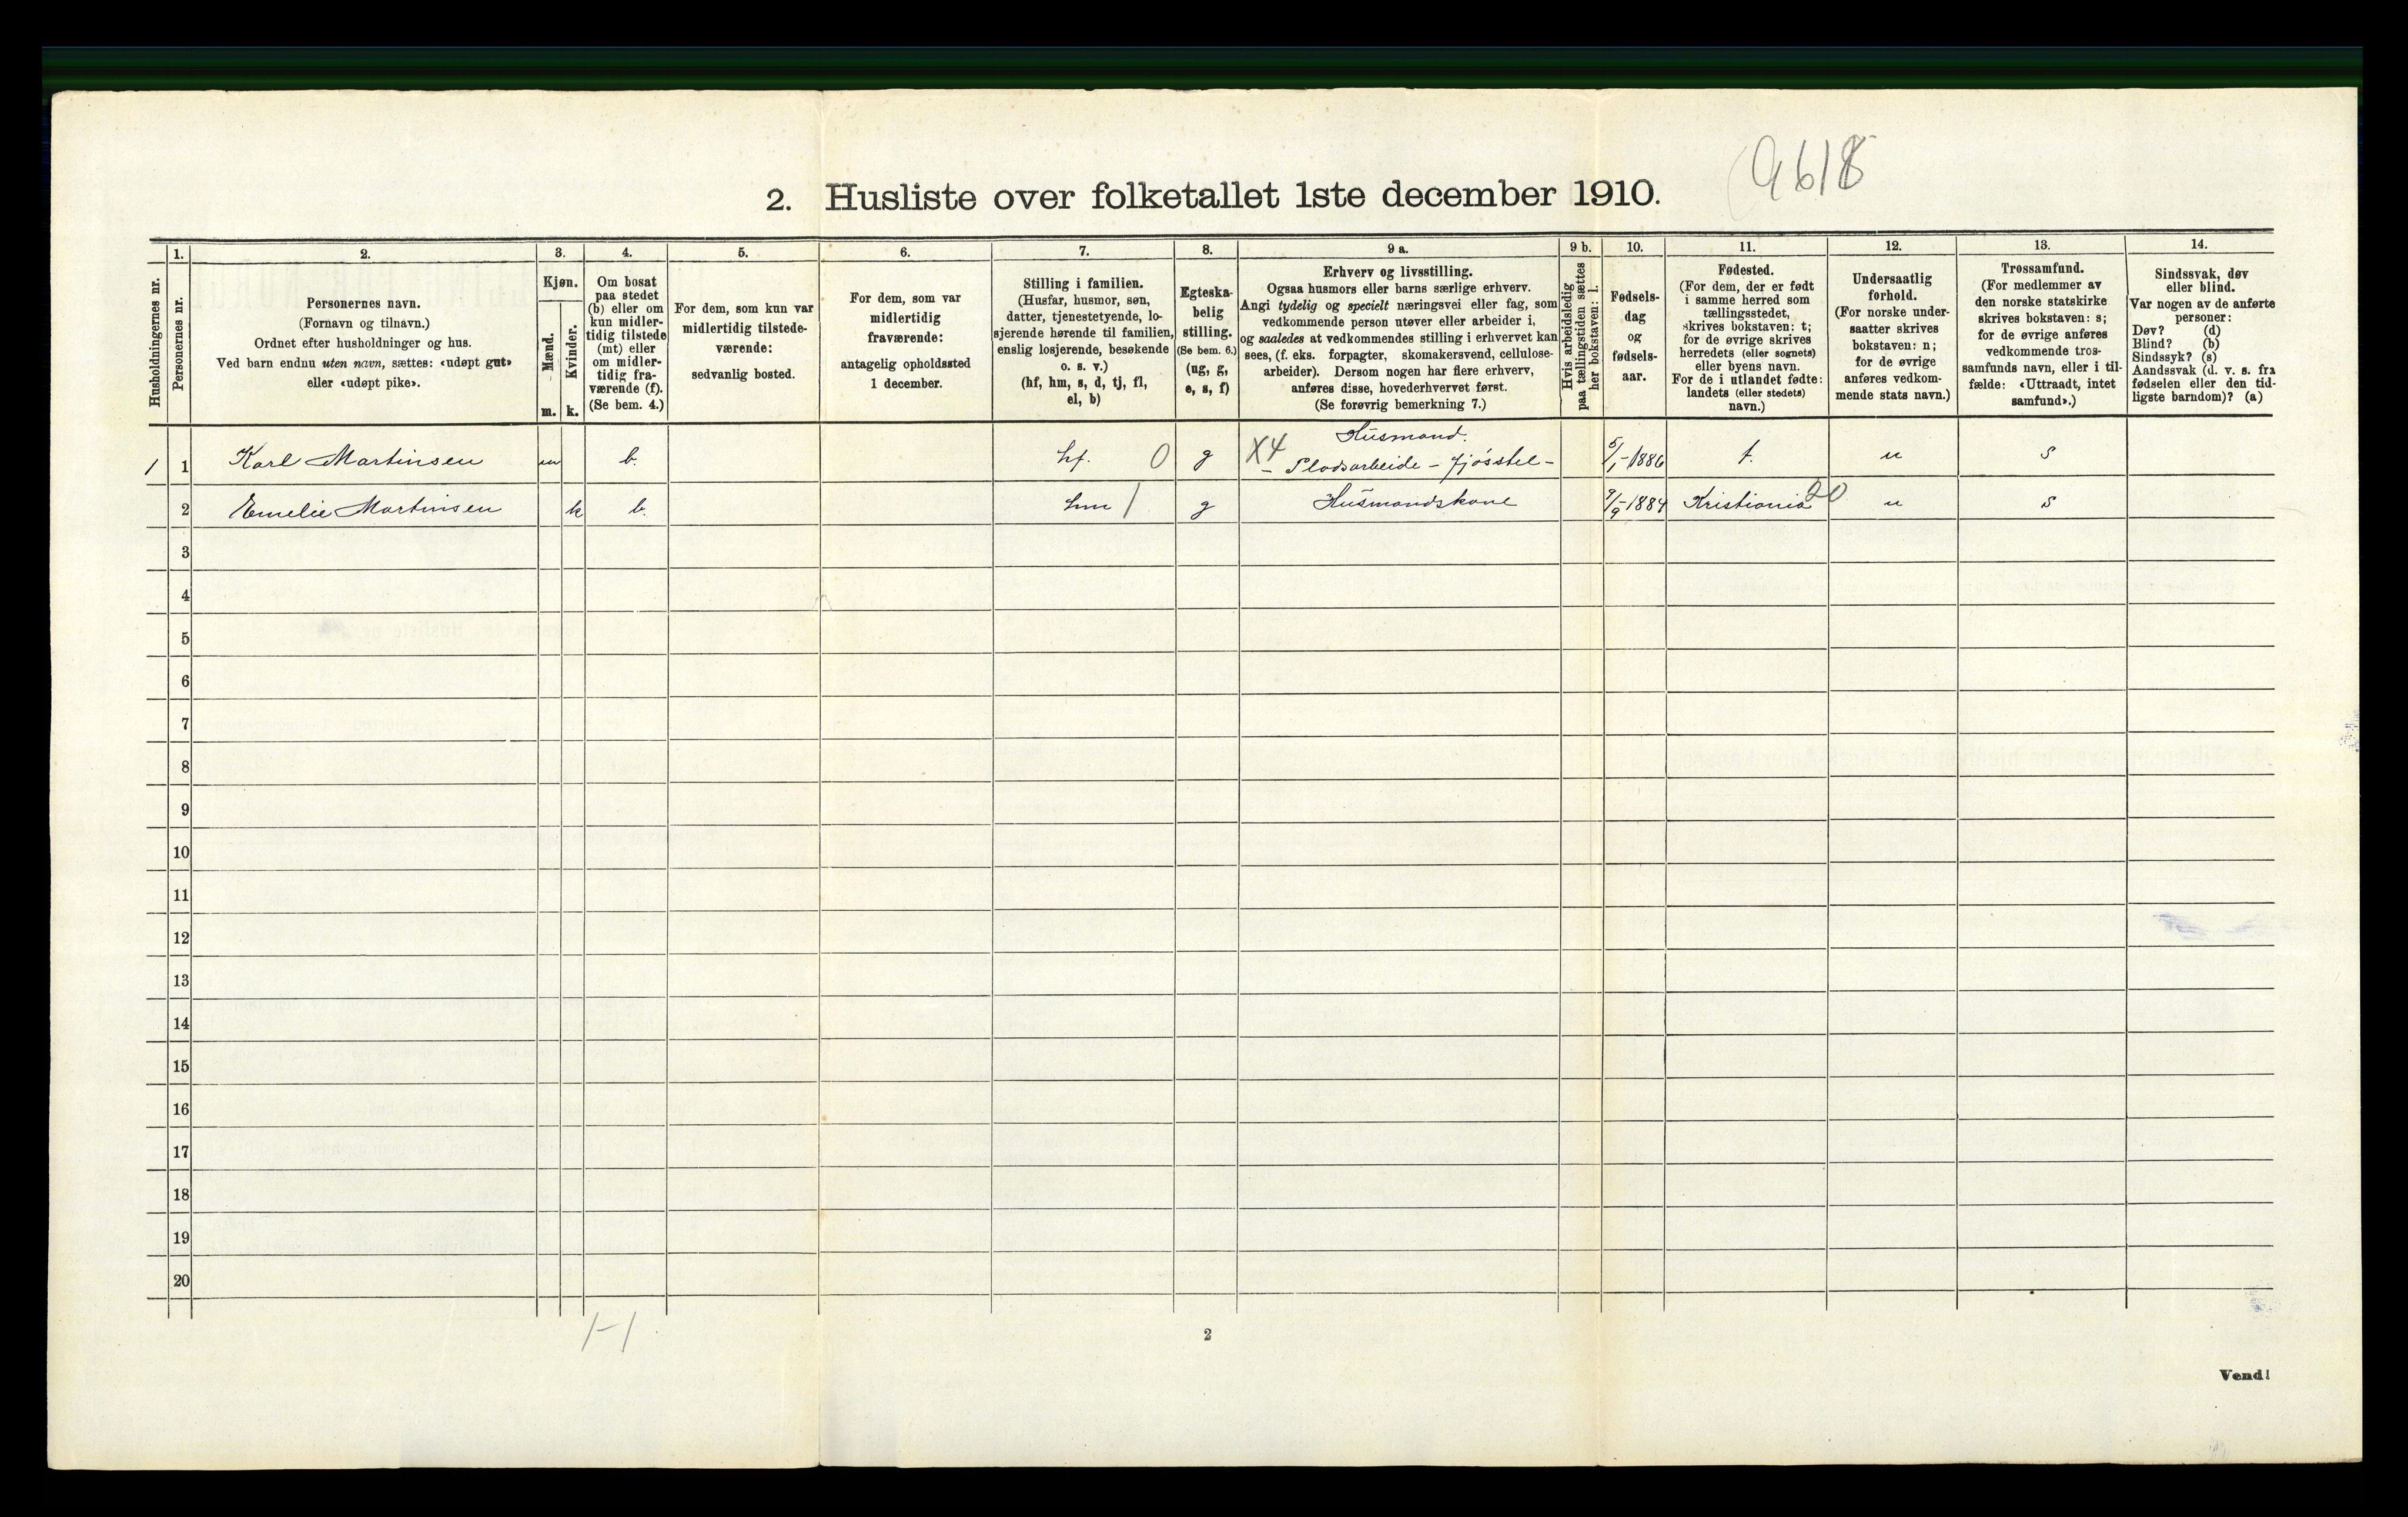 9618
2. Husliste over folketallet 1ste december 1910.
Husholdningernes nr.
1.
Personernes nr.
2.
Personernes navn.
(Fornavn og tilnavn.)
Ordnet efter husholdninger og hus.
Ved barn endnu uten navn, sættes: «udøpt gut»
eller «udøpt pike».
3.
Kjøn.
Mænd.
Kvinder.
m. k.
4.
Om bosat
paa stedet
(b) eller om
kun midler-
tidig tilstede
(mt) eller
om midler-
tidig fra-
værende (f).
(Se bem. 4.)
5.
For dem, som kun var
midlertidig tilstede-
værende:
sedvanlig bosted.
6.
For dem, som var
midlertidig
fraværende:
antagelig opholdssted
1 december.
7.
Stilling i familien.
(Husfar, husmor, søn,
datter, tjenestetyende, lo-
sjerende hørende til familien,
enslig losjerende, besøkende
o. s. v.)
(hf, hm, s, d, tj, fl,
el, b)
8.
Egteska-
belig
stilling.
(Se bem. 6.)
(ug, g,
e, s, f)
9 a.
Erhverv og livsstilling.
Ogsaa husmors eller barns særlige erhverv.
Angi tydelig og specielt næringsvei eller fag, som
vedkommende person utøver eller arbeider i,
og saaledes at vedkommendes stilling i erhvervet kan
sees, (f. eks. forpagter, skomakersvend, cellulose-
arbeider). Dersom nogen har flere erhverv,
anføres disse, hovederhvervet først.
(Se forøvrig bemerkning 7.)
9 b.
Hvis arbeidsledig
paa tællingstiden sættes
her bokstaven: l.
10.
Fødsels-
dag
og
fødsels-
aar.
11.
Fødested.
(For dem, der er født
i samme herred som
tællingsstedet,
skrives bokstaven: t;
for de øvrige skrives
herredets (eller sognets)
eller byens navn.
For de i utlandet fødte:
landets (eller stedets)
navn.)
12.
Undersaatlig
forhold.
(For norske under-
saatter skrives
bokstaven: n;
for de øvrige
anføres vedkom-
mende stats navn.)
13.
Trossamfund.
(For medlemmer av
den norske statskirke
skrives bokstaven: s;
for de øvrige anføres
vedkommende tros-
samfunds navn, eller i til-
fælde: «Uttraadt, intet
samfund».)
14.
Sindssvak, døv
eller blind.
Var nogen av de anførte
personer:
Døv? (d)
Blind? (b)
Sindssyk? (s)
Aandssvak (d. v. s. fra
fødselen eller den tid-
ligste barndom)? (a)
Husmand.
1 1 Karl Martinsen m b. hf. 0 g X4 - Pladsarbeide - fjøsstel - 5/1-1886 t. n s
2 Emelie Martinsen k b. hm 1 g Husmandskone 9/9-1884 Kristiania 20 n s
3
4
5
6
7
8
9
10
11
12
13
14
15
16
17
18
19
20
1-1
2
Vend!